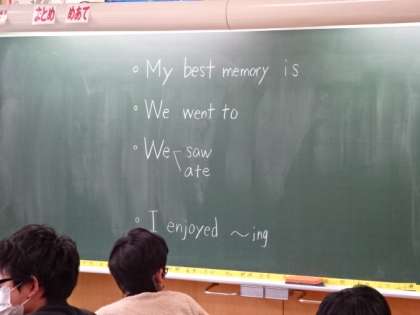 まとめ めあて
○ My best memory is
○ We went to
○ We saw
ate
○ I enjoyed ～ing